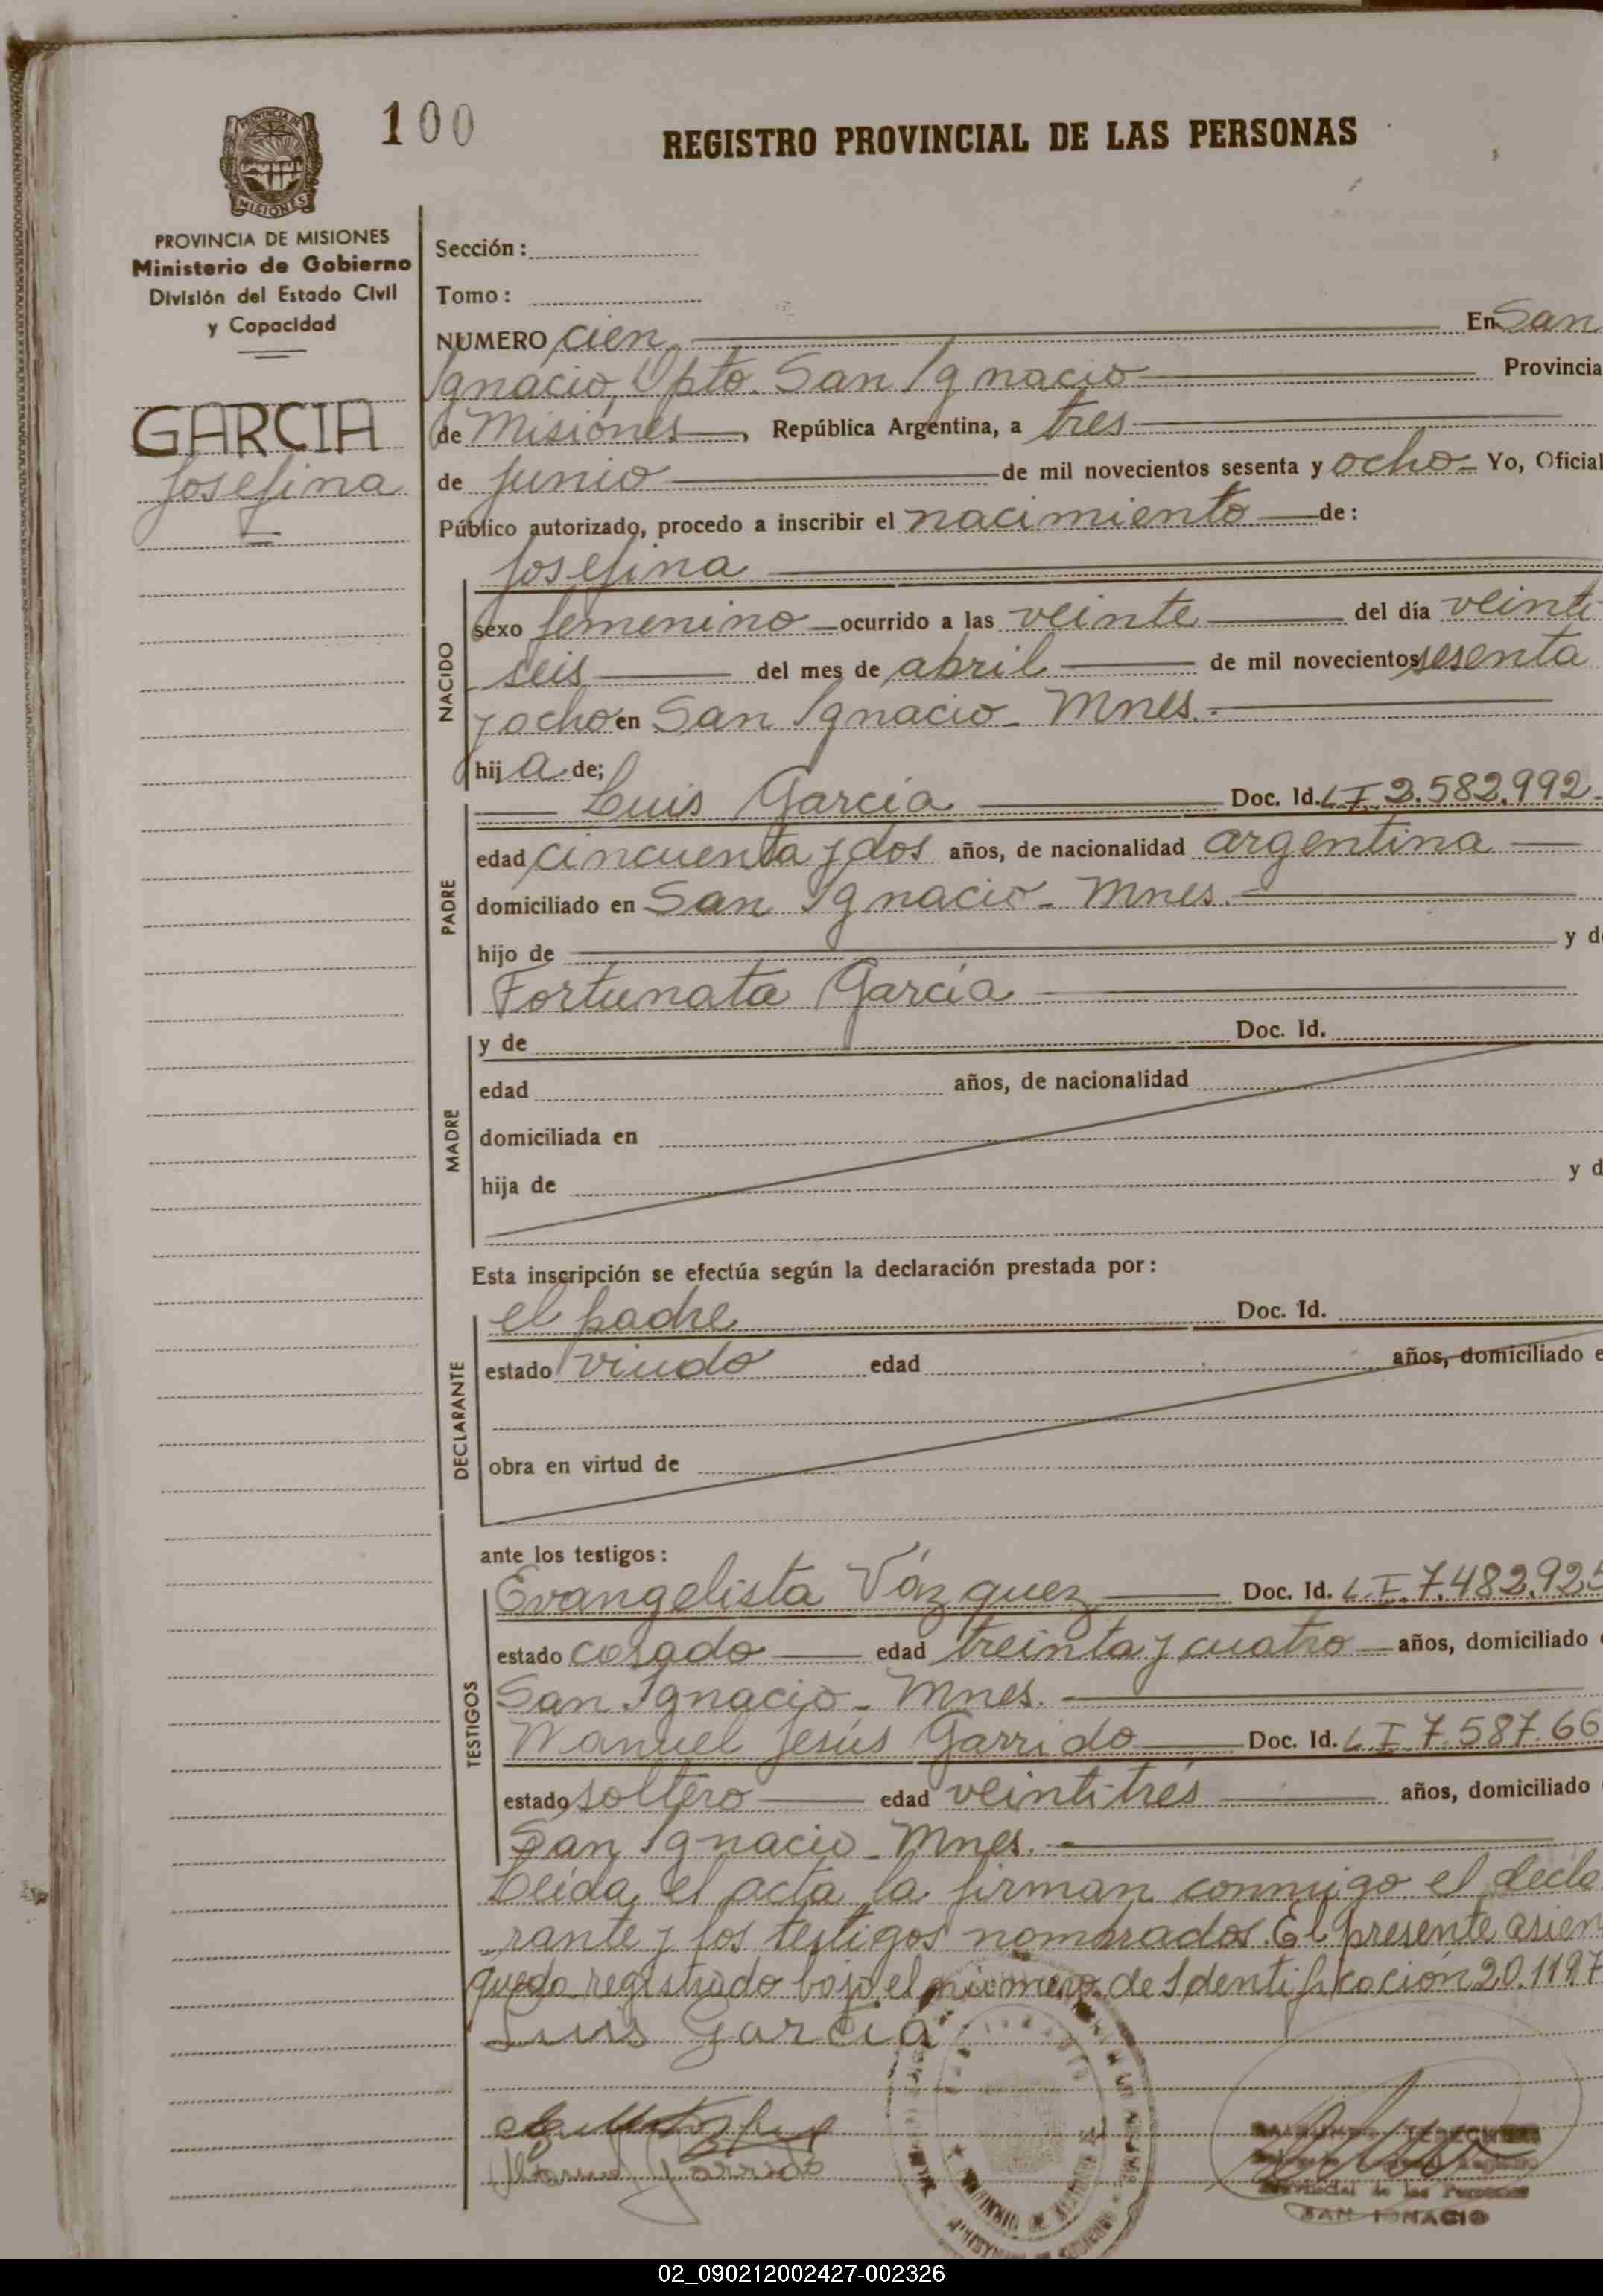 100
REGISTRO PROVINCIAL DE LAS PERSONAS
PROVINCIA DE MISIONES
Ministerio de Gobierno
División del Estado Civil
y Capacidad
GARCIA
Josefina
Sección:
Tomo:
NUMERO cien En San
Ignacio, Dpto. San Ignacio Provincia
de Misiones, República Argentina, a tres
de junio de mil novecientos sesenta y ocho Yo, Oficial
Público autorizado, procedo a inscribir el nacimiento de:
NACIDO
Josefina
sexo femenino ocurrido a las veinte del día veinti
seis del mes de abril de mil novecientos sesenta
y ocho en San Ignacio - Mnes.
hij a de;
PADRE
Luis García Doc. Id. L I 2.582.992
edad cincuenta y dos años, de nacionalidad argentina
domiciliado en San Ignacio - Mnes.
hijo de y d
Fortunata García
MADRE
y de Doc. Id.
edad años, de nacionalidad
domiciliada en
hija de y d
Esta inscripción se efectúa según la declaración prestada por:
DECLARANTE
el padre Doc. Id.
estado viudo edad años, domiciliado e
obra en virtud de
ante los testigos:
TESTIGOS
Evangelista Vázquez Doc. Id. L I 7.482.925
estado casado edad treinta y cuatro años, domiciliado
San Ignacio - Mnes.
Manuel Jesús Garrido Doc. Id. L I 7.587.66
estado soltero edad veintitrés años, domiciliado
San Ignacio - Mnes.
Leída el acta la firman conmigo el decla
rante y los testigos nombrados. El presente asien
queda registrado bajo el número de Identificación 20.1197
Luis Garcia
Manuel Garrido
Provincial de las Personas
SAN IGNACIO
02_090212002427-002326